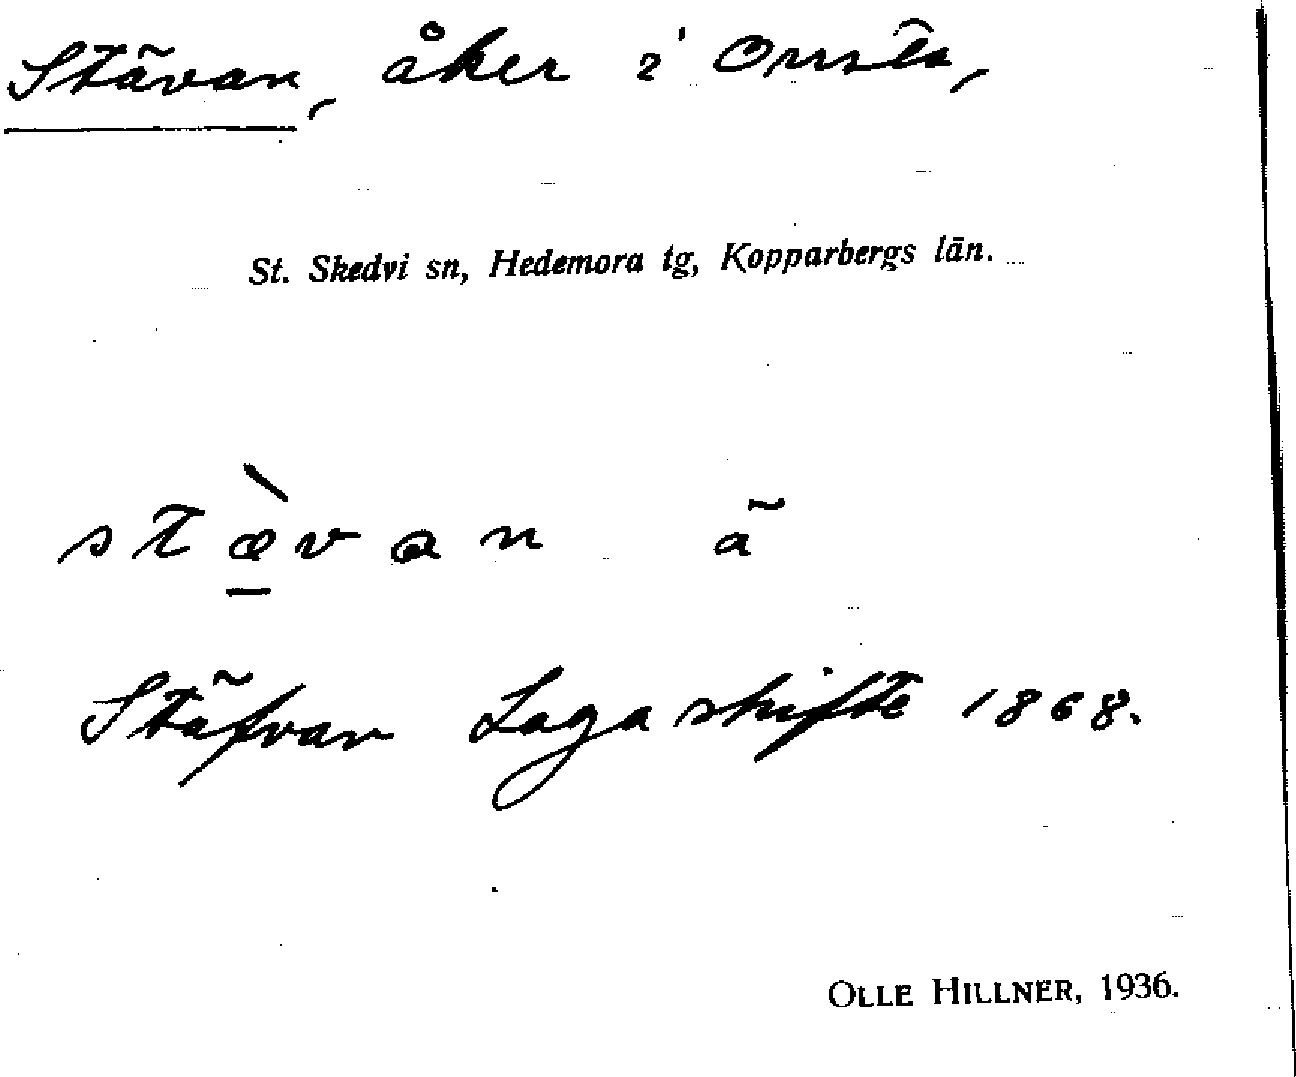 Stävan, åker i Ornsta,
St. Skedvi sn, Hedemora tg, Kopparbergs län.
stæ̠̀van ä
Stäfvan Laga skifte 1868.
OLLE HILLNER, 1936.